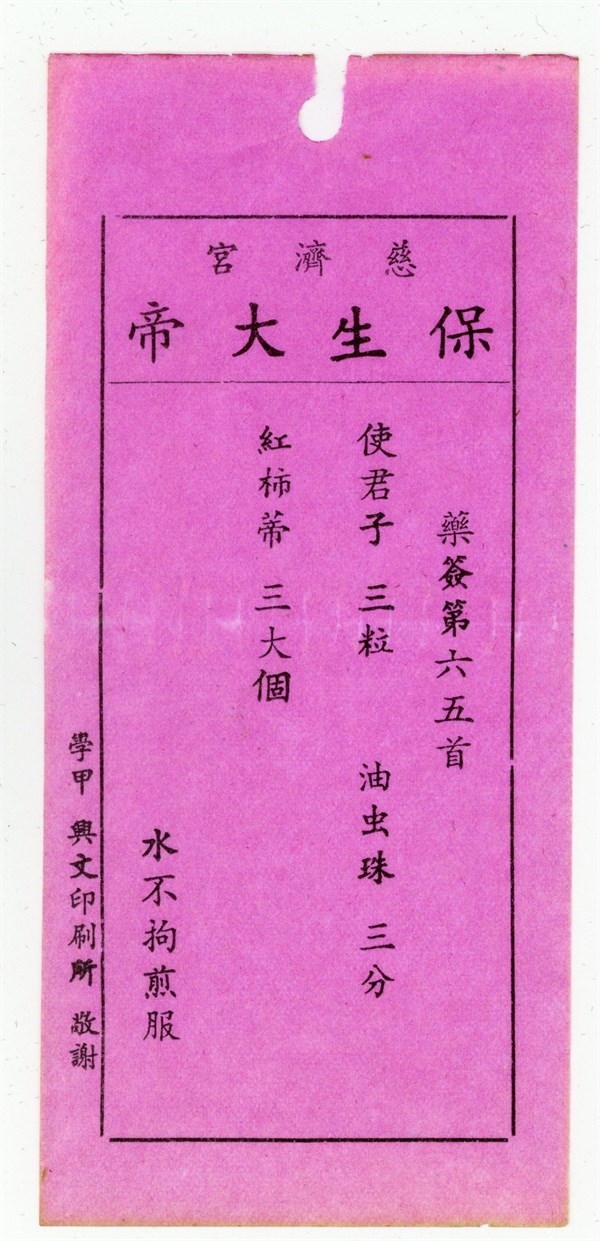 慈濟宮
保生大帝
藥簽第六五首
使君子 三粒 油虫珠 三分
紅柿蒂 三大個
水不拘煎服
學甲 興文印刷所 敬謝